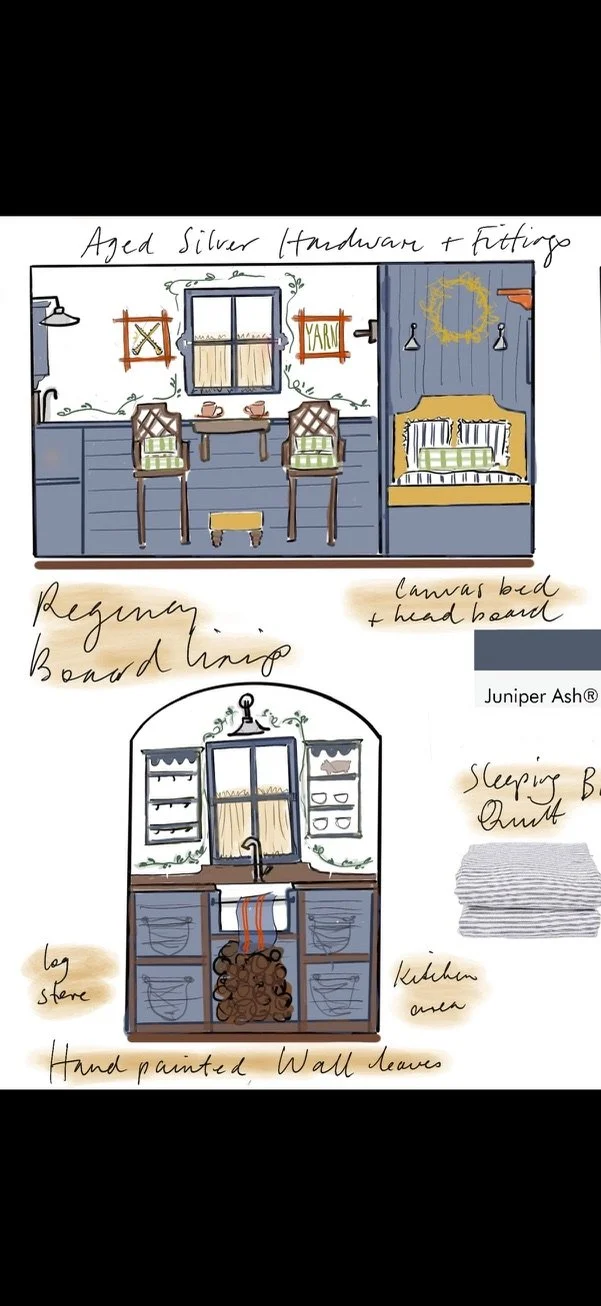 Aged Silver Hardware + Fittings
YARN
Regency
Board lining
Canvas bed
+ head board
Juniper Ash®
Sleeping B
Quilt
Log
store
Kitchen
area
Hand painted Wall leaves